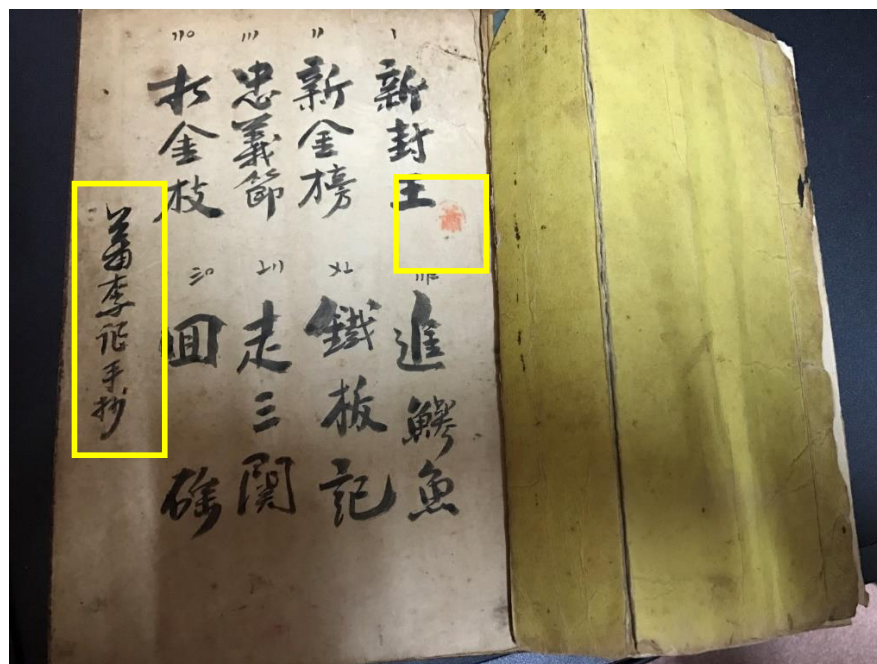 新封王
新金榜
忠義節
打金枝
進鰐魚
鐵板記
走三關
回
蕭李記手抄